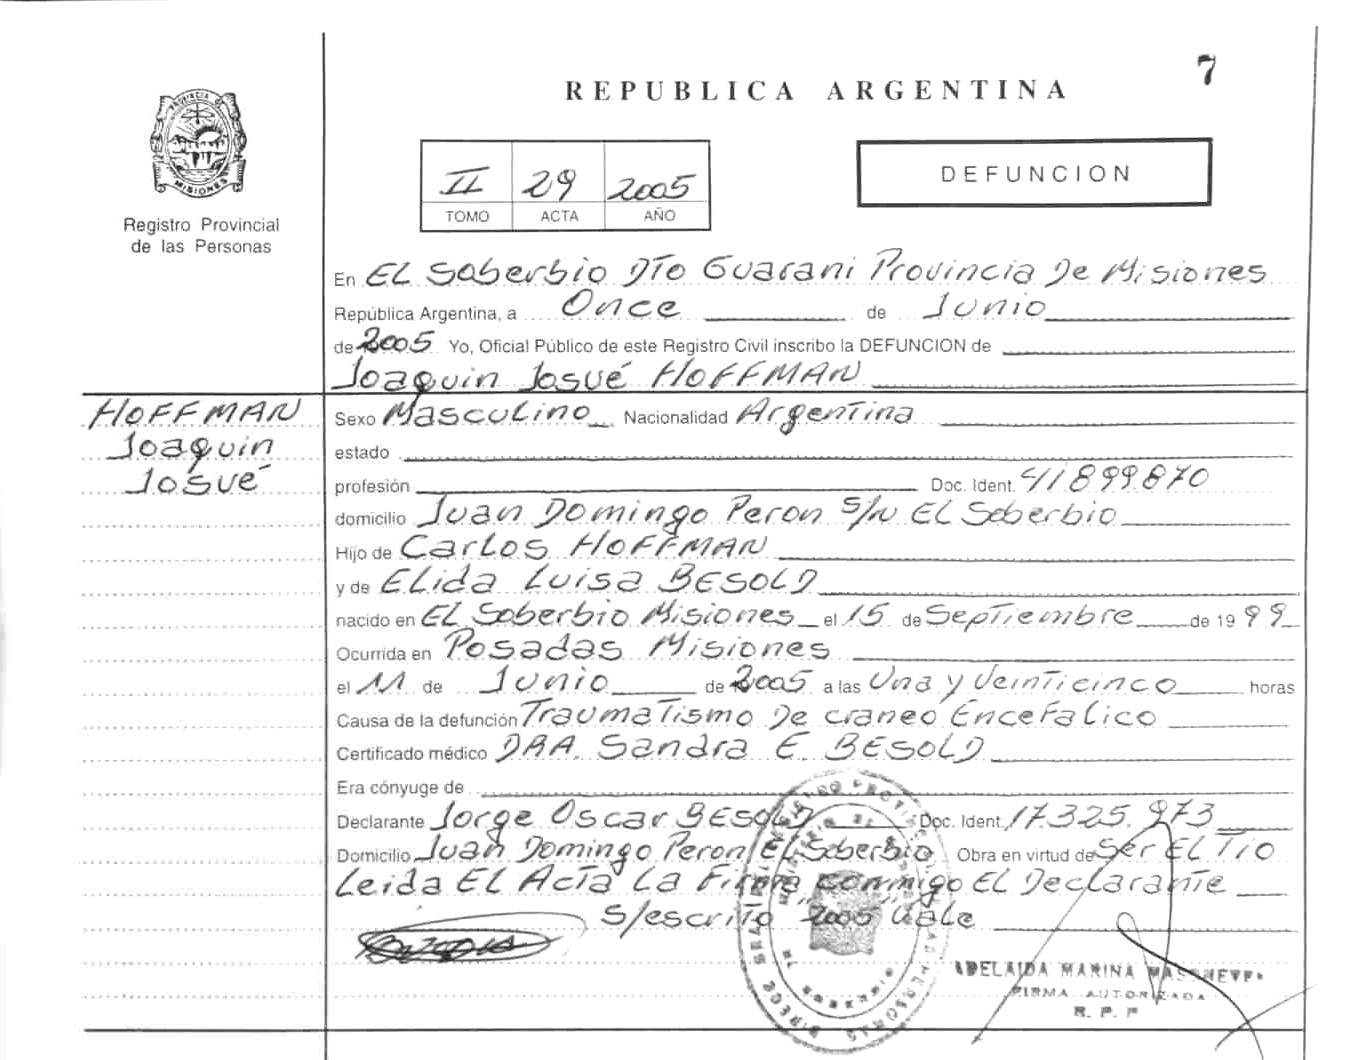 7
REPUBLICA ARGENTINA
PROVINCIA DE
MISIONES
Registro Provincial
de las Personas
II 29 2005
TOMO ACTA AÑO
DEFUNCION
En EL Soberbio DTo Guarani Provincia De Misiones
República Argentina, a Once de Junio
de 2005 Yo, Oficial Público de este Registro Civil inscribo la DEFUNCION de
Joaquin Josué HOFFMAN
HOFFMAN
Joaquin
Josué
Sexo Masculino Nacionalidad Argentina
estado
profesión Doc. Ident. 41899.870
domicilio Juan Domingo Peron S/N EL Soberbio
Hijo de Carlos HOFFMAN
y de ELida Luisa BESOLD
nacido en EL Soberbio Misiones el 15 de Septiembre de 1999
Ocurrida en Posadas Misiones
el 11 de Junio de 2005 a las Una y Veinticinco horas
Causa de la defunción Traumatismo De craneo Encefalico
Certificado médico DRA. Sandra E. BESOLD
Era cónyuge de
Declarante Jorge Oscar BESOLD Doc. Ident. 17.325.973
Domicilio Juan Domingo Peron EL Soberbio Obra en virtud de Ser EL Tio
Leida EL Acta La Firma conmigo EL Declarante
S/escrito "2005" Vale
ADELAIDA MARINA
FIRMA AUTORIZADA
R. P. P